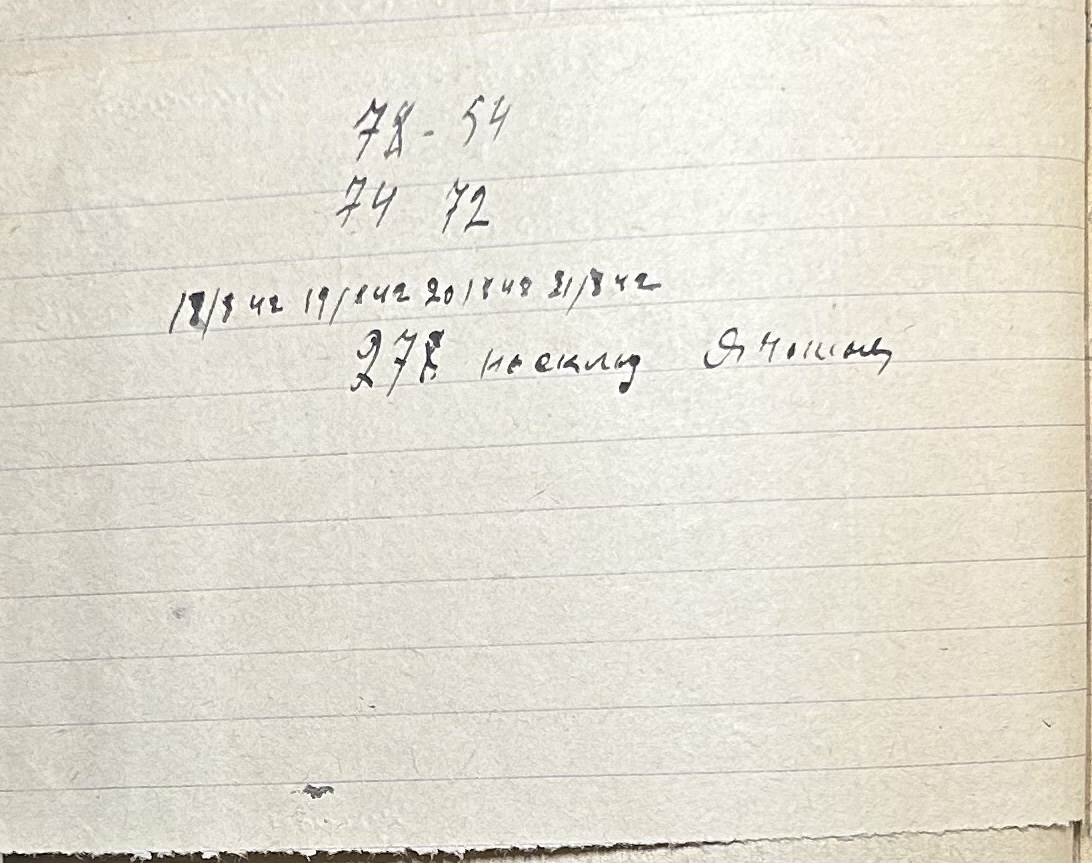 78 - 54
74 72
18/8 42 19/8 42 20/8 42 21/8 42
278 на склад